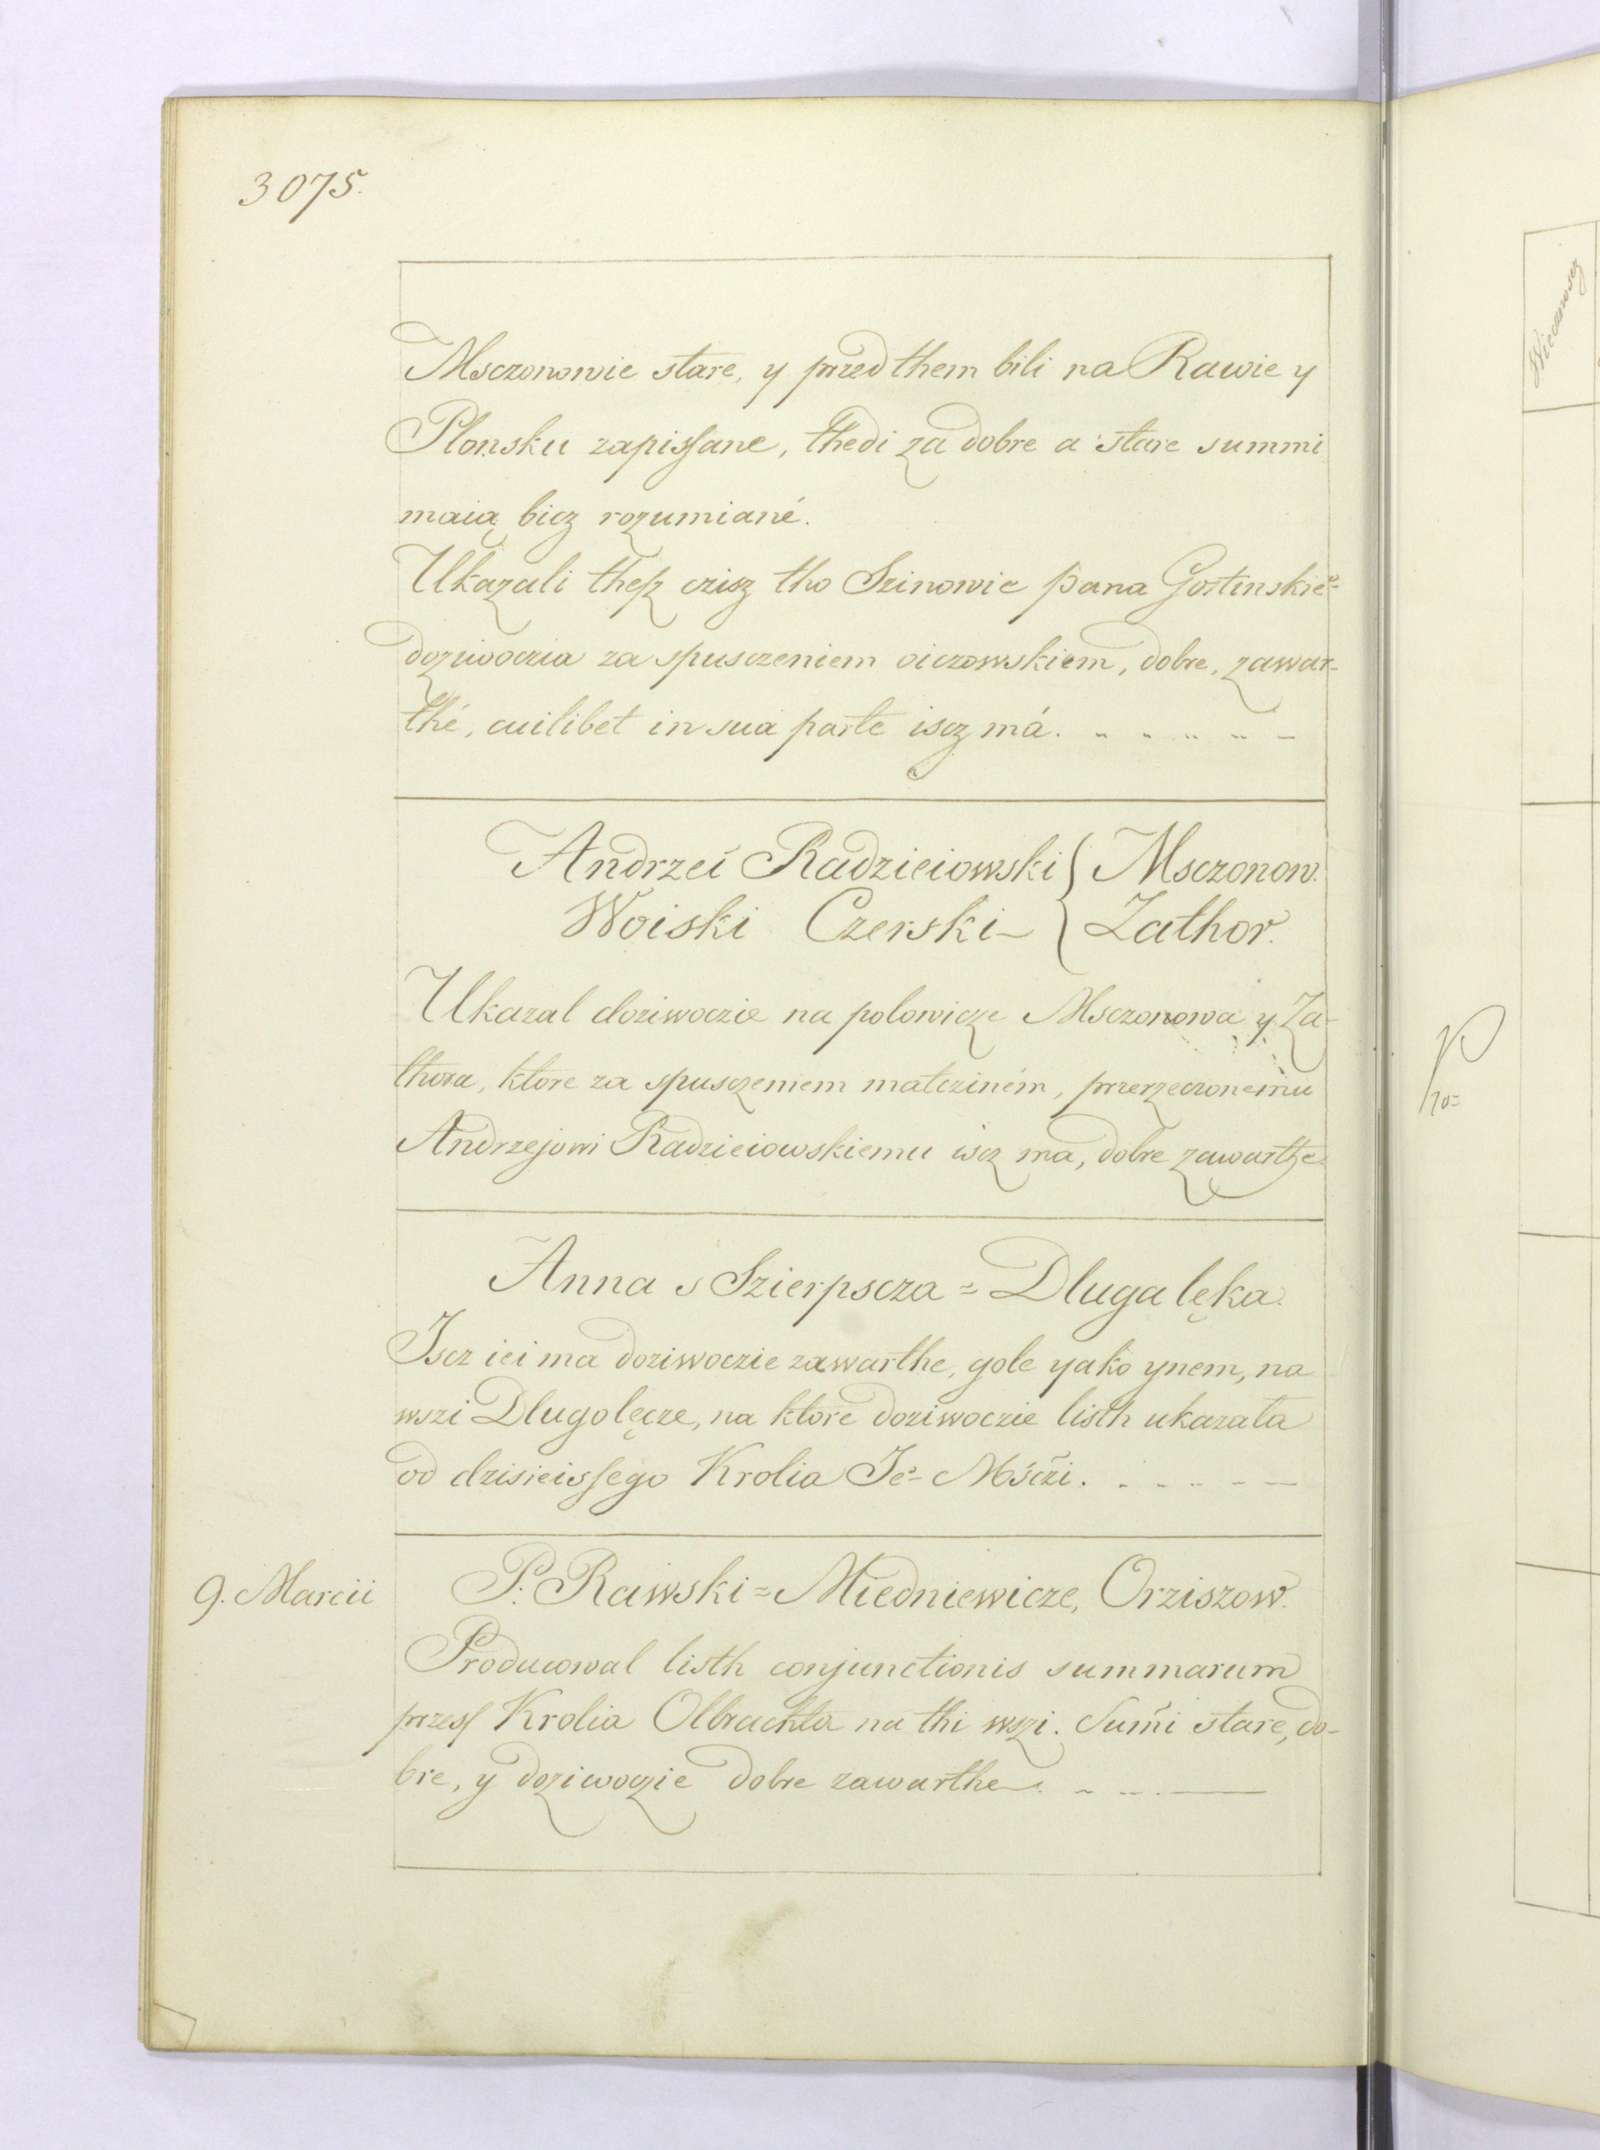 3075.
Msczonowie stare, y przed them bili na Rawie y
Plonsku zapissane, thedi za dobre a stare summi
maią bicz rozumiané.
Ukazali thesz czisz tho Szinowie pana Gostinskie°-
doziwoczia za spusczeniem oiczowskiem, dobre, zawar-
thé, cuilibet in sua parte iscz má.
Andrzei Radzieiowski { Msczonow.
Woiski Czerski - { Zathor.
Ukazal doziwoczie na polowicze Msczonowa y Za-
thora, ktore za spusczeniem matcziném, przerzeczonemu
Andrzejowi Radzieiowskiemu iscz ma, dobre zawarthe
Anna s Szierpscza = Dluga lęka.
Iscz iei ma doziwoczie zawarthe, gole yako ynem, na
wszi Dlugolęcze, na ktore doziwoczie listh ukazała
od dzisieissego Krolia Je°- Mśczi.
9. Marcii
P. Rawski = Miedniewicze, Orziszow.
Producowal listh conjunctionis summarum
przess Krolia Olbrachta na thi wszi. Sum̃i stare, do-
bre, y doziwoczie dobre zawarthe.